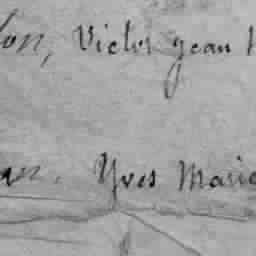 lon, Victor jean
an. Yves Marie